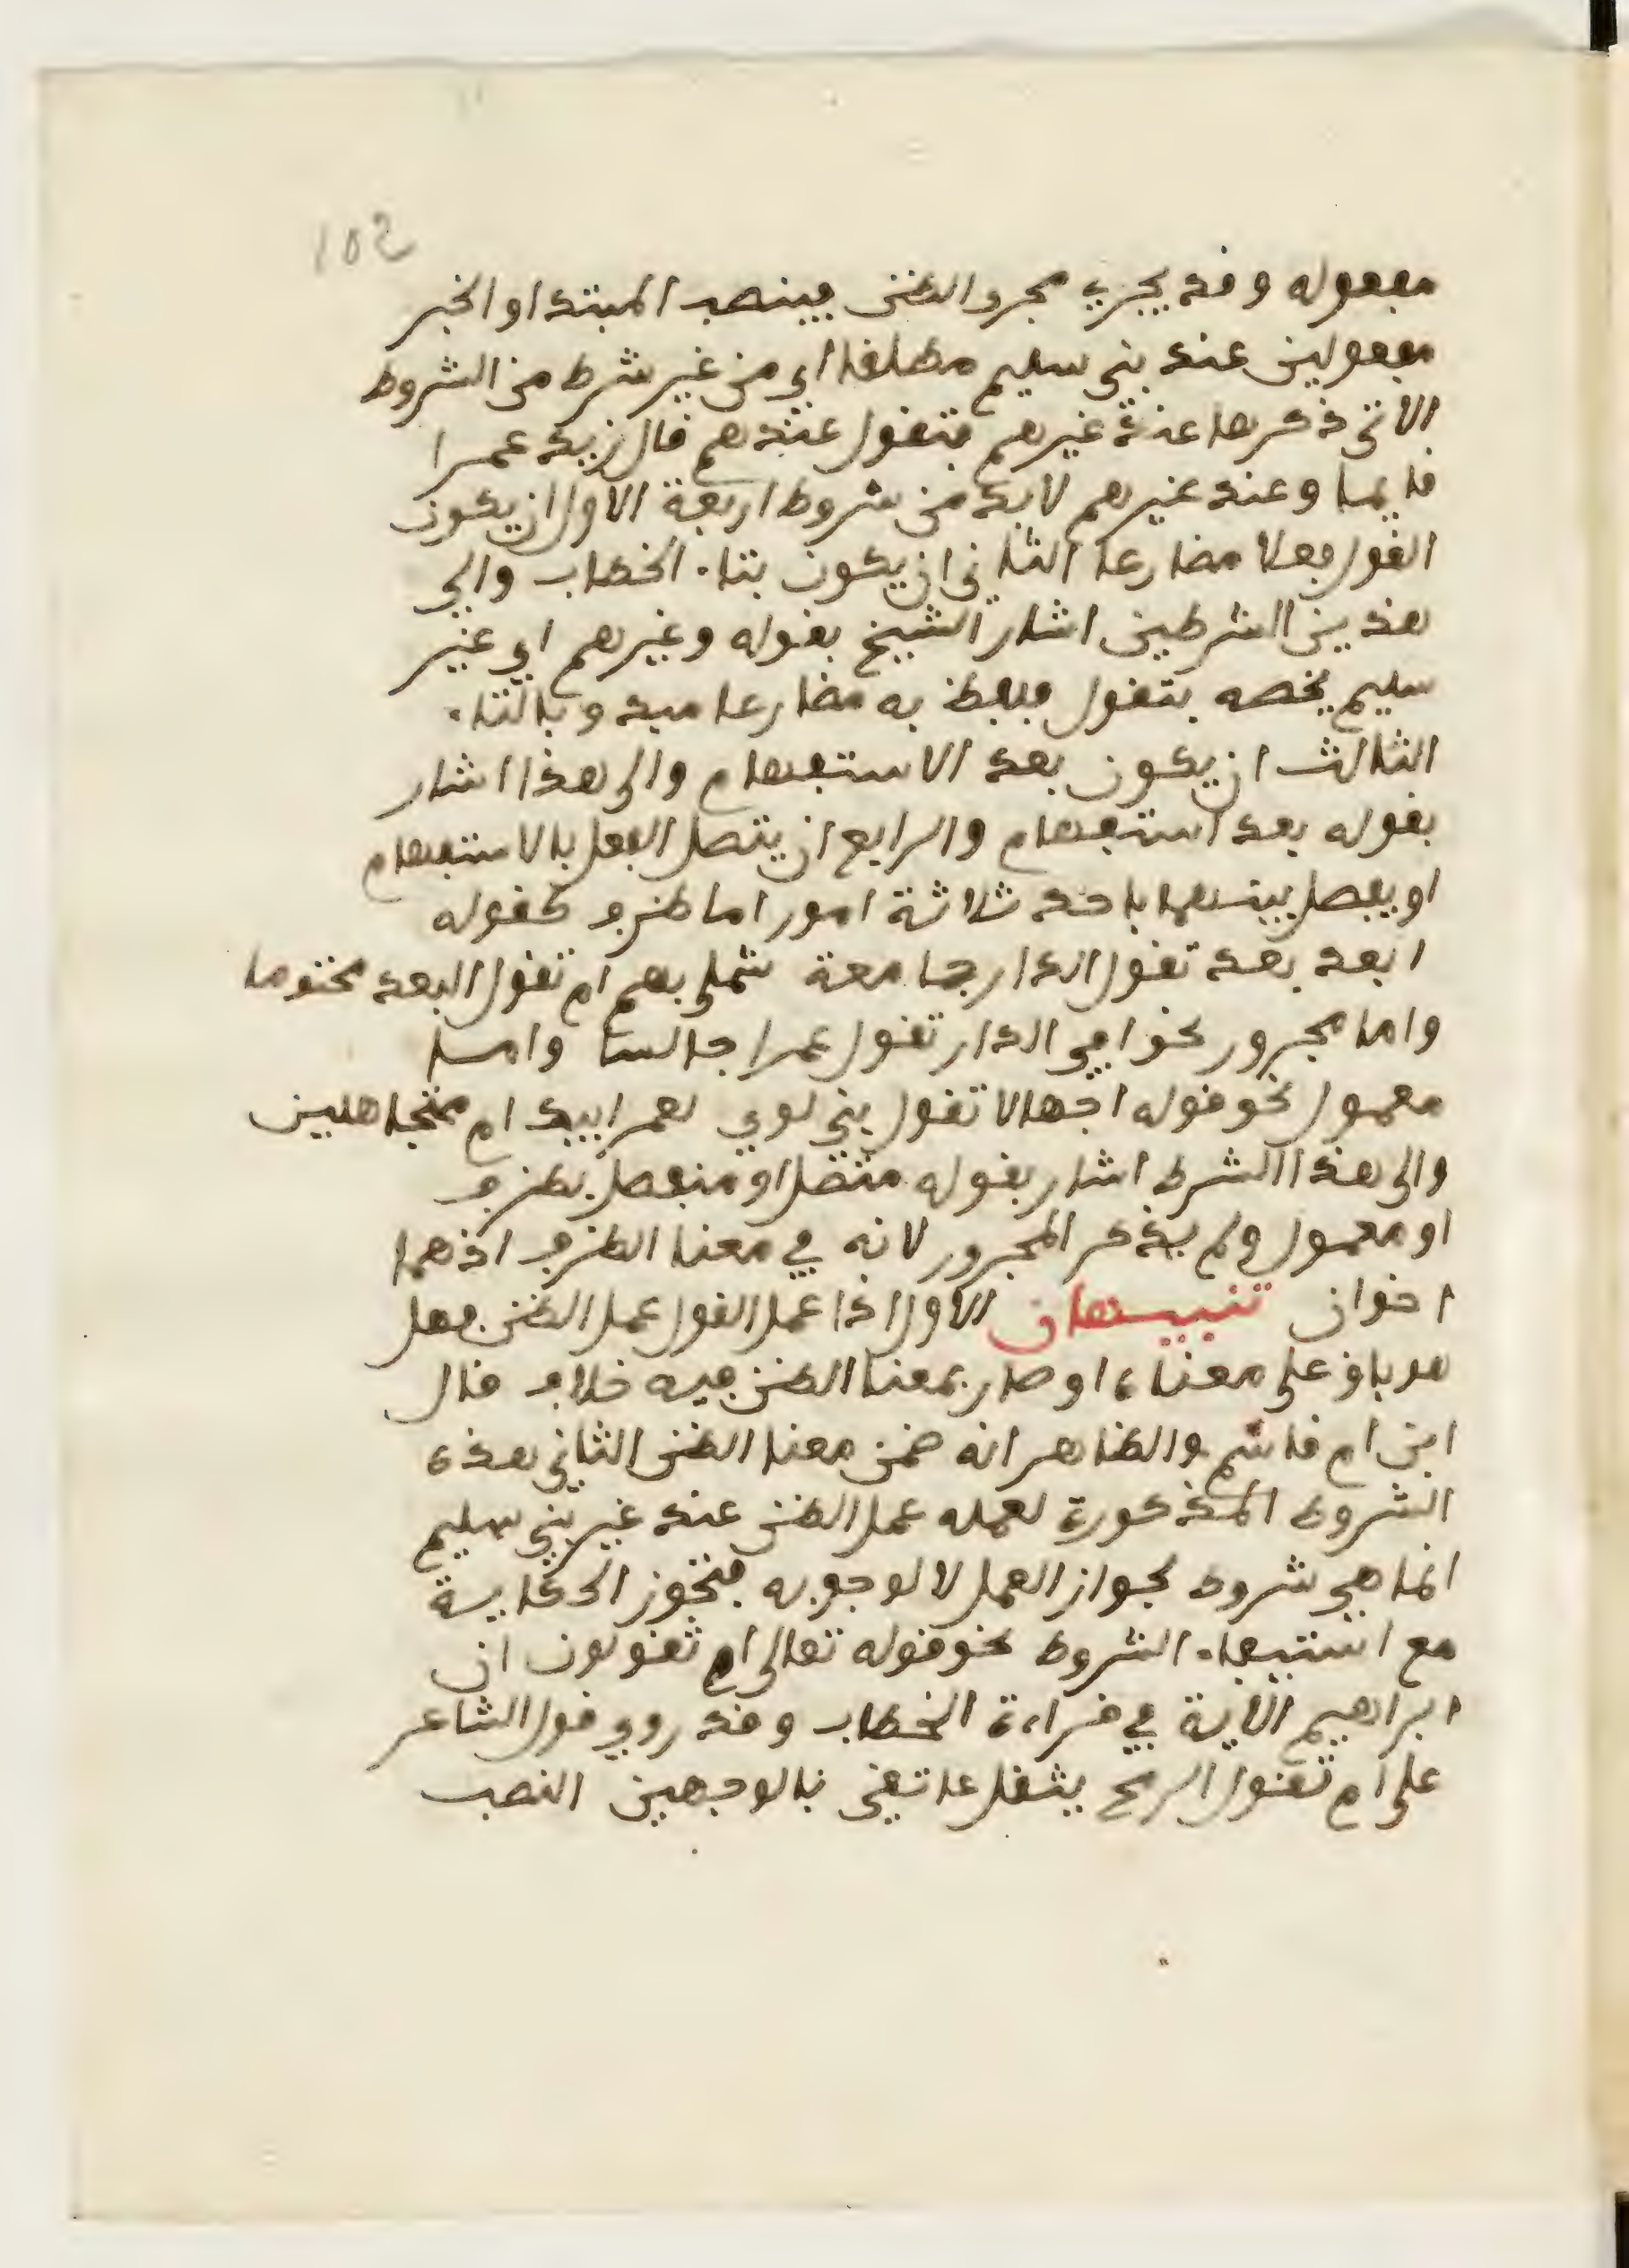 102
مفعوله وقد يجري مجرى الظن فينصب المبتدا والخبر
مفعولين عند بني سليم مطلقا اي من غير شرط من الشروط
الاتي ذكرها عند غيرهم فتقول عندهم قال زيد عمرا
قايما وعند غيرهم لا بد من شروط اربعة الاول ان يكون
القول فعلا مضارعا الثاني ان يكون بتاء الخطاب والى
هذين الشرطين اشار الشيخ بقوله وغيرهم اي غير
سليم يخصه بتقول فلفظ به مضارعا مبد وبالتاء
الثالث ان يكون بعد الاستفهام والى هذا اشار
بقوله بعد استفهام والرابع ان يتصل الفعل بالاستفهام
او يفصل بينهما باحد ثلاثة امور اما ظرف كقوله
ابعد بعد تقول الدار جامعة شملي بهم ام تقول البعد محتوما
واما مجرور نحو افي الدار تقول عمرا جالسا واما
معمول نحو قوله اجهالا تقول بني لوي لعمر ابيك ام متجاهلين
والى هذا الشرط اشار بقوله متصل او منفصل بظرف
او معمول ولم يذكر المجرور لانه في معنا الظرف اذهما
اخوان تنبيهان الاول اذا عمل القول عمل الظن فهل
هو باق على معناه او صار بمعنا الظن فيه خلاف قال
ابن ام قاسم والظاهر انه ضمن معنا الظن الثاني هذه
الشروط المذكورة لعمله عمل الظن عند غير بني سليم
انما هي شروط لجواز العمل لا لوجوبه فتجوز الحكاية
مع استيفاء الشروط نحو قوله تعالى ام تقولون ان
ابراهيم الاية في قراءة الخطاب وقد روي قول الشاعر
على ام تقول الرمح يثقل عاتقي بالوجهين النصب